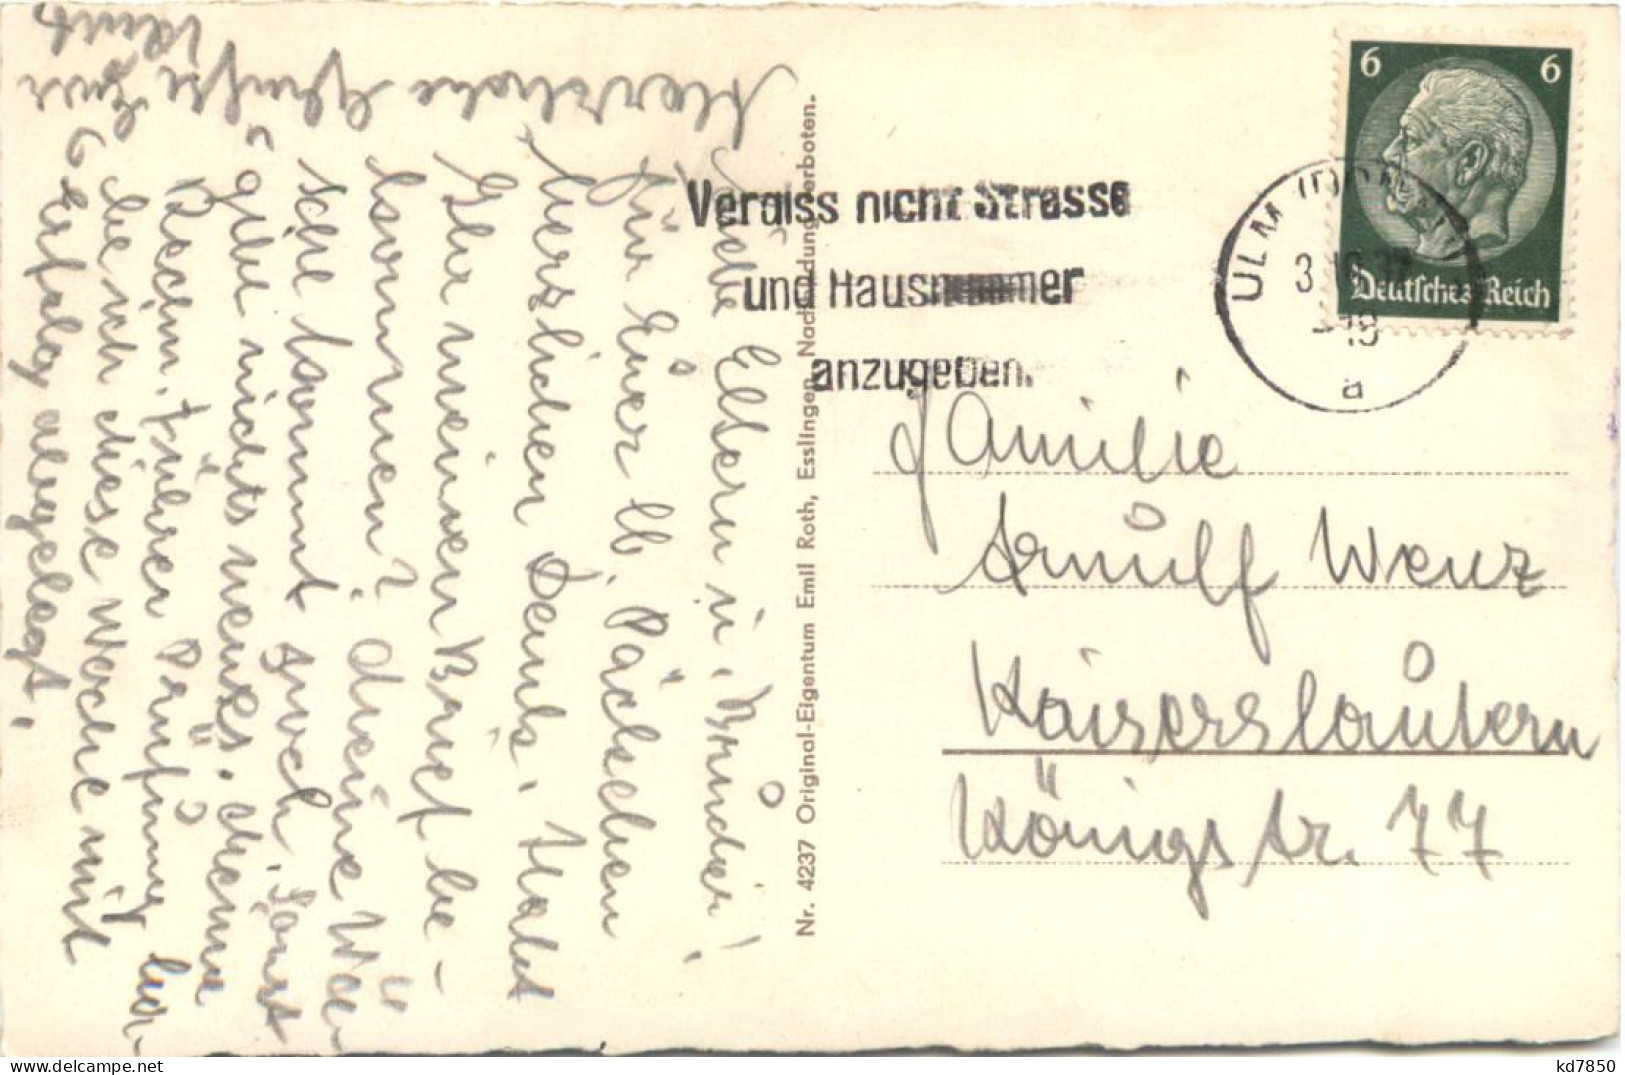 Liebe Eltern u. Brüder!
Für Euer lb. Päckchen
herzlichen Dank. Habt
Ihr meinen Brief be-
kommen? Meine Wä-
sche kommt auch. Sonst
gibt nichts neues. Meine
Rechn. führer Prüfung ha-
be ich diese Woche mit
Erfolg abgelegt.
Herzliche Grüße Euer
Nr. 4237 Original-Eigentum Emil Roth, Esslingen. Nachbildung verboten.
Vergiss nicht Strasse
und Hausnummer
anzugeben.
ULM (DONAU)
3.10.37
-19
a
6 6
Deutsches Reich
Familie
Arnulf Wenz
Kaiserslautern
Königstr. 77
kd7850